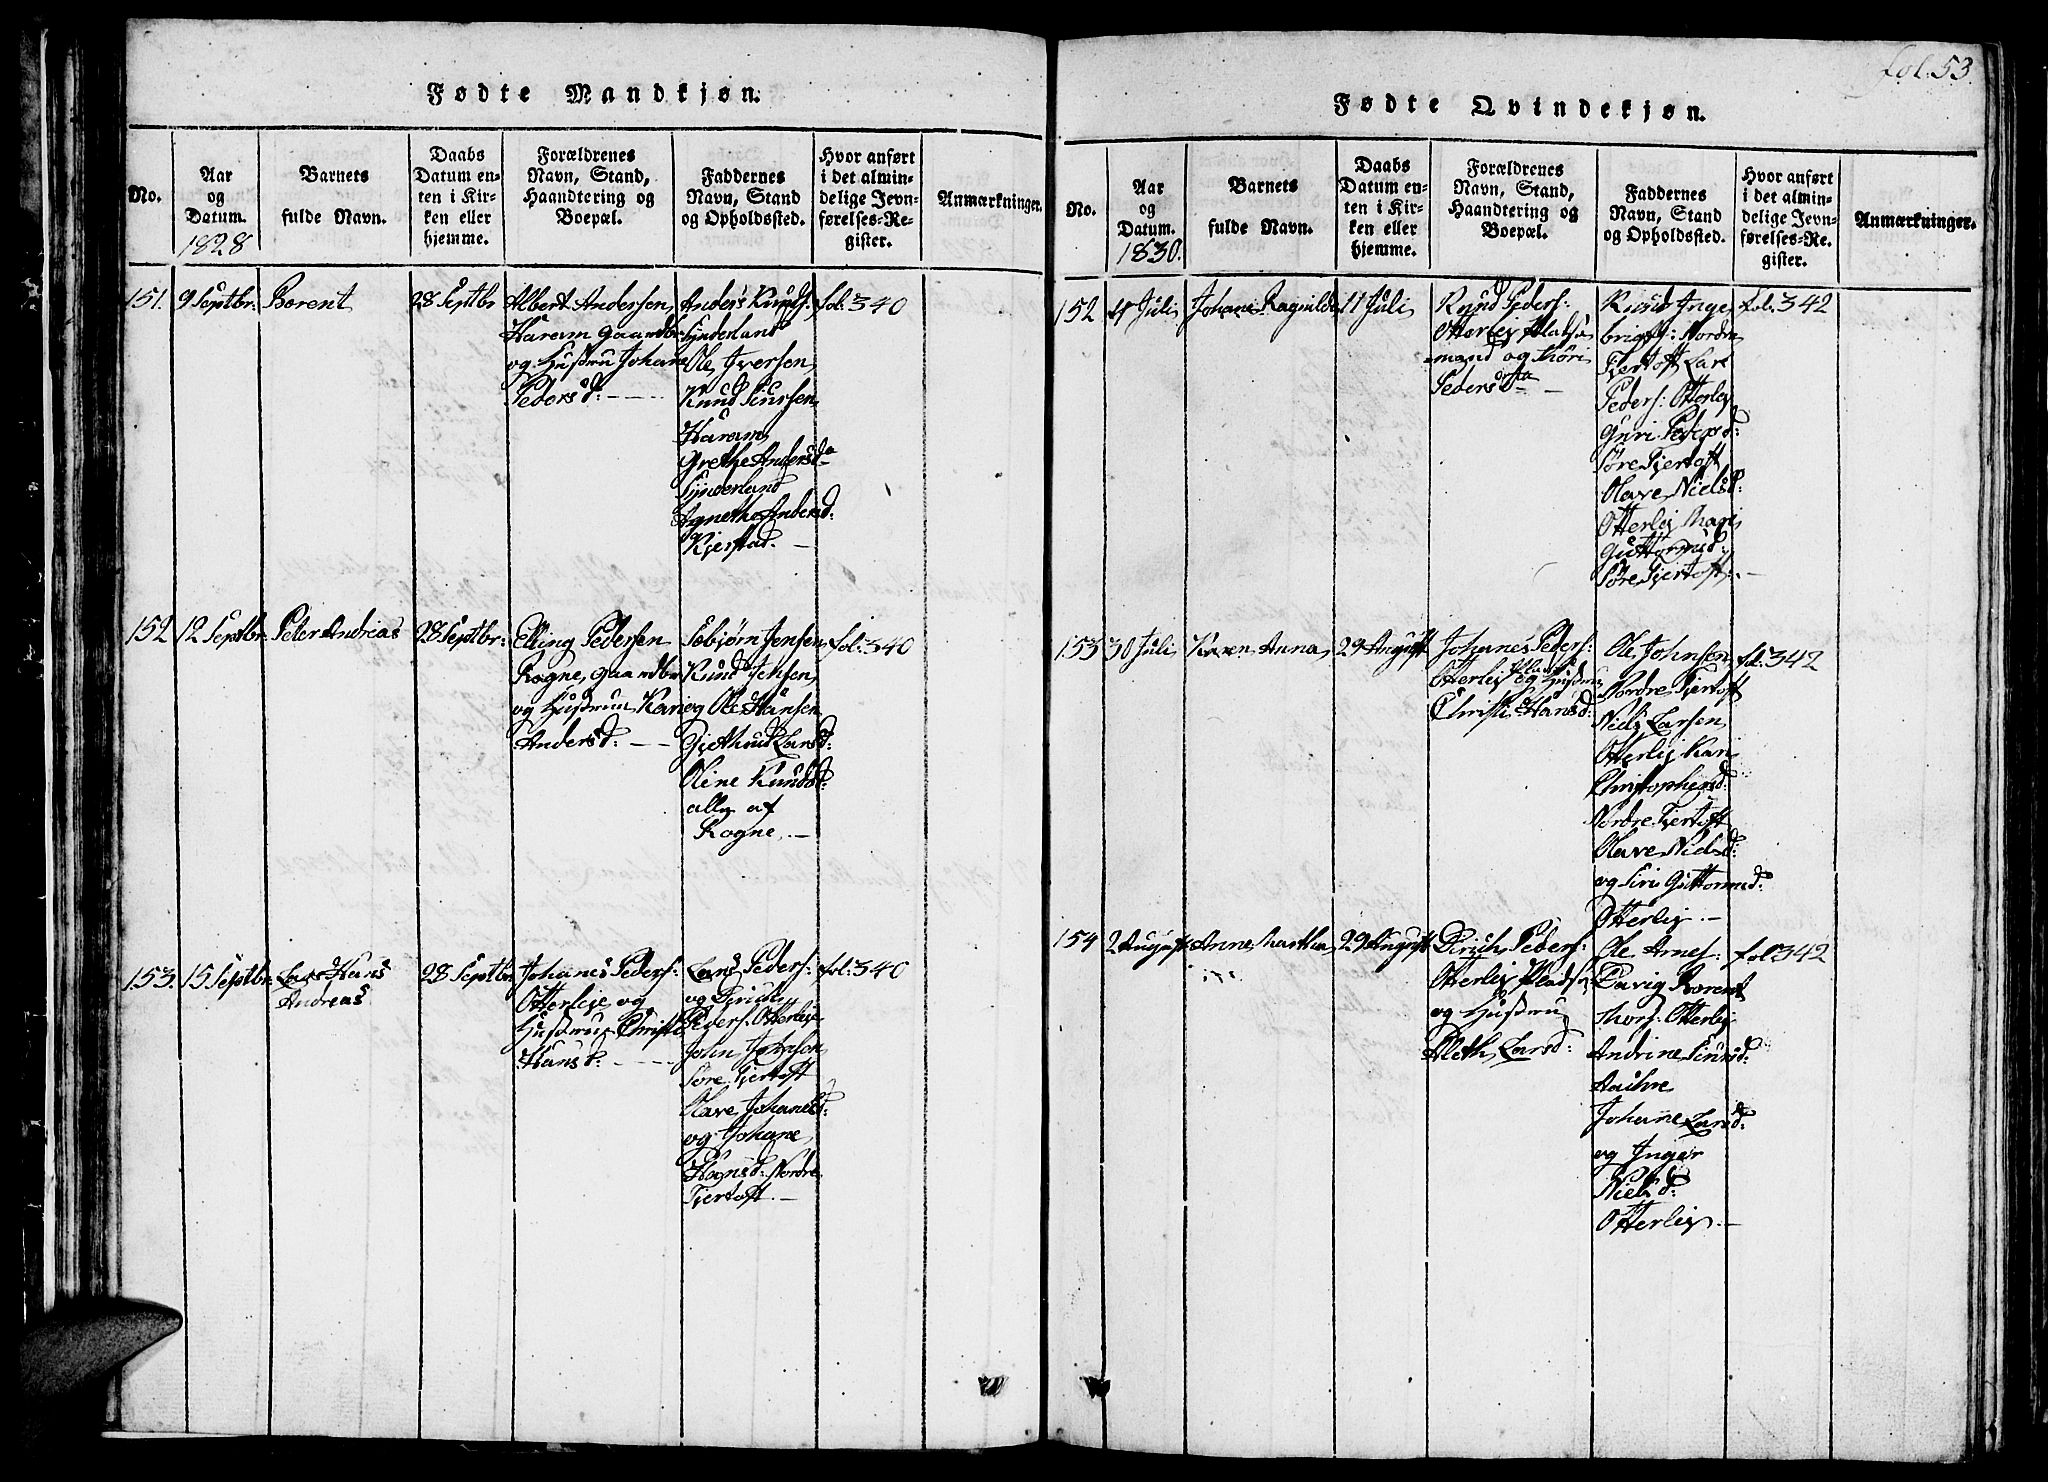 Fødte Mandkjøn.
No.
Aar
og
Datum.
1828
Barnets
fulde Navn.
Daabs
Datum en-
ten i Kir-
ken eller
hjemme.
Forældrenes
Navn, Stand,
Haandtering og
Boepæl.
Faddernes
Navn, Stand
og Opholdssted.
Hvor anført
i det almin-
delige Jevn-
førelses-Re-
gister.
Anmærkninger.
151.
9 Septbr:
Berent
28 Septbr
Albert Andersen
Haram Gaardbr
og Hustru Johane
Pedersd:
Anders Knuds:
Synderland
Ole Iversen
Knud Siursen
Haram
Grethe Andersd
Synderland
Agnethe Andersd:
Kjerstad. —
fol: 340
152
12 Septbr:
Peter Andreas
28 Septbr:
Elling Pedersen
Rogne, Gaardbr
og Hustru Kari
Andersd: —
Sebjørn Jensen
Knud Jensen
og Ole Hansen
Gjethrud Larsd:
Oline Knudsd:
alle af
Rogne. —
fol: 340
153.
15 Septbr:
Lars Hans
Andreas
28 Septbr
Johanes Peders:
Otterleje og
Hustrue Christi
Hansd:
Lars Peders:
og Dirich
Peders: Otterleje
John Johnsen
Søre Fjertoft
Olave Johanesd:
og Johane
Hansd: Nordre
Fjertoft. —
fol: 340
fol. 53
Fødte Qvindekjøn.
No.
Aar
og
Datum.
1830.
Barnets
fulde Navn.
Daabs
Datum en-
ten i Kir-
ken eller
hjemme.
Forældrenes
Navn, Stand,
Haandtering og
Boepæl.
Faddernes
Navn, Stand
og Opholdssted.
Hvor anført
i det almin-
delige Jevn-
førelses-Re-
gister.
Anmærkninger.
152
Juli
Johane Ragnilda
11 Juli
Knud Peders:
Otterlej Pladsa
mand og
Pedersd
Knud Inge
brigts: Nordre
Fjertoft Lars
Peders: Otterlej
Guri Pedersd:
Søre Fjertoft
Olave Nielsd:
Otterlej Mari
Guttormsd:
Søre Fjertoft. —
fol. 342
153
30 Juli
Karen Anna
29 August
Johanes Peders:
Otterlej og Hustru
Christi Hansd:
Ole Johnsen
Nordre Fjertoft
Niels Larsen
Otterlej Kari
Christophersd:
Nordre Fjertoft
Olave Nielsd:
og Siri Guttormsd:
Otterlej. —
fol. 342
154
2 August
Anne Martha
29 August
Dirich Peders:
Otterlej Pladsa
og Hustru
Aleth Larsd:
Ole Arnes:
Berent
Otterlej
Andrine Siursd:
Johane Larsd:
og Inger
Nielsd:
Otterlej. —
fol 342